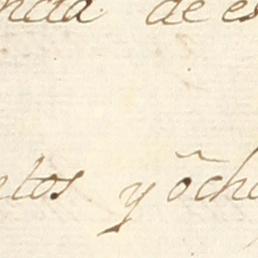 ncia de es
ntos y õcho